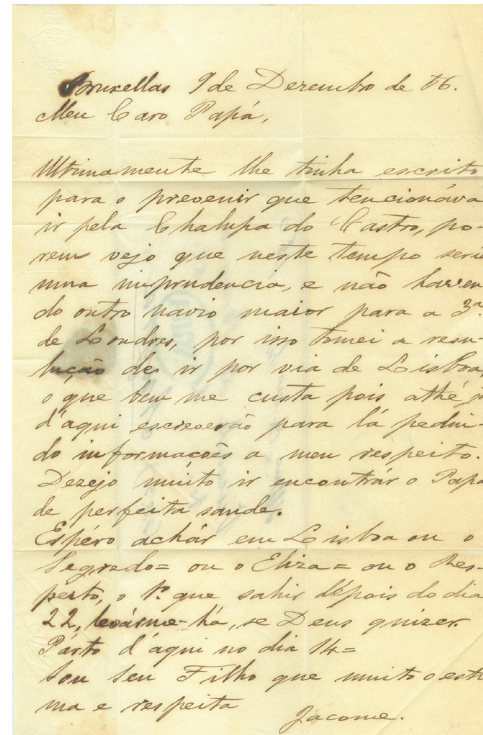 Bruxellas 9 de Dezembro de 76.
Meu Caro Papá,
Ultimamente lhe tinha escrito
para o prevenir que tencionáva
ir pela Chalupa do Castro, po-
rem vejo que neste tempo seria
uma inprudencia, e não haven
do outro navio maior para a 3ª
de Londres, por isso tomei a reso-
lução de ir por via de Lisboa,
o que bem me custa pois athé já
d'aqui escreverão para lá pedin-
do informações a meu respeito.
Dezejo muito ir encontrár o Papá
de perfeita saude.
Espéro achár em Lisboa ou o
Segredo= ou o Eliza= ou o Res-
peito, o 1º que sahir depois do dia
22, levárme-há, se Deus quizer
Párto d'aqui no dia 14=
Sou Seu Filho que muito o esti
ma e respeita
Jacome.